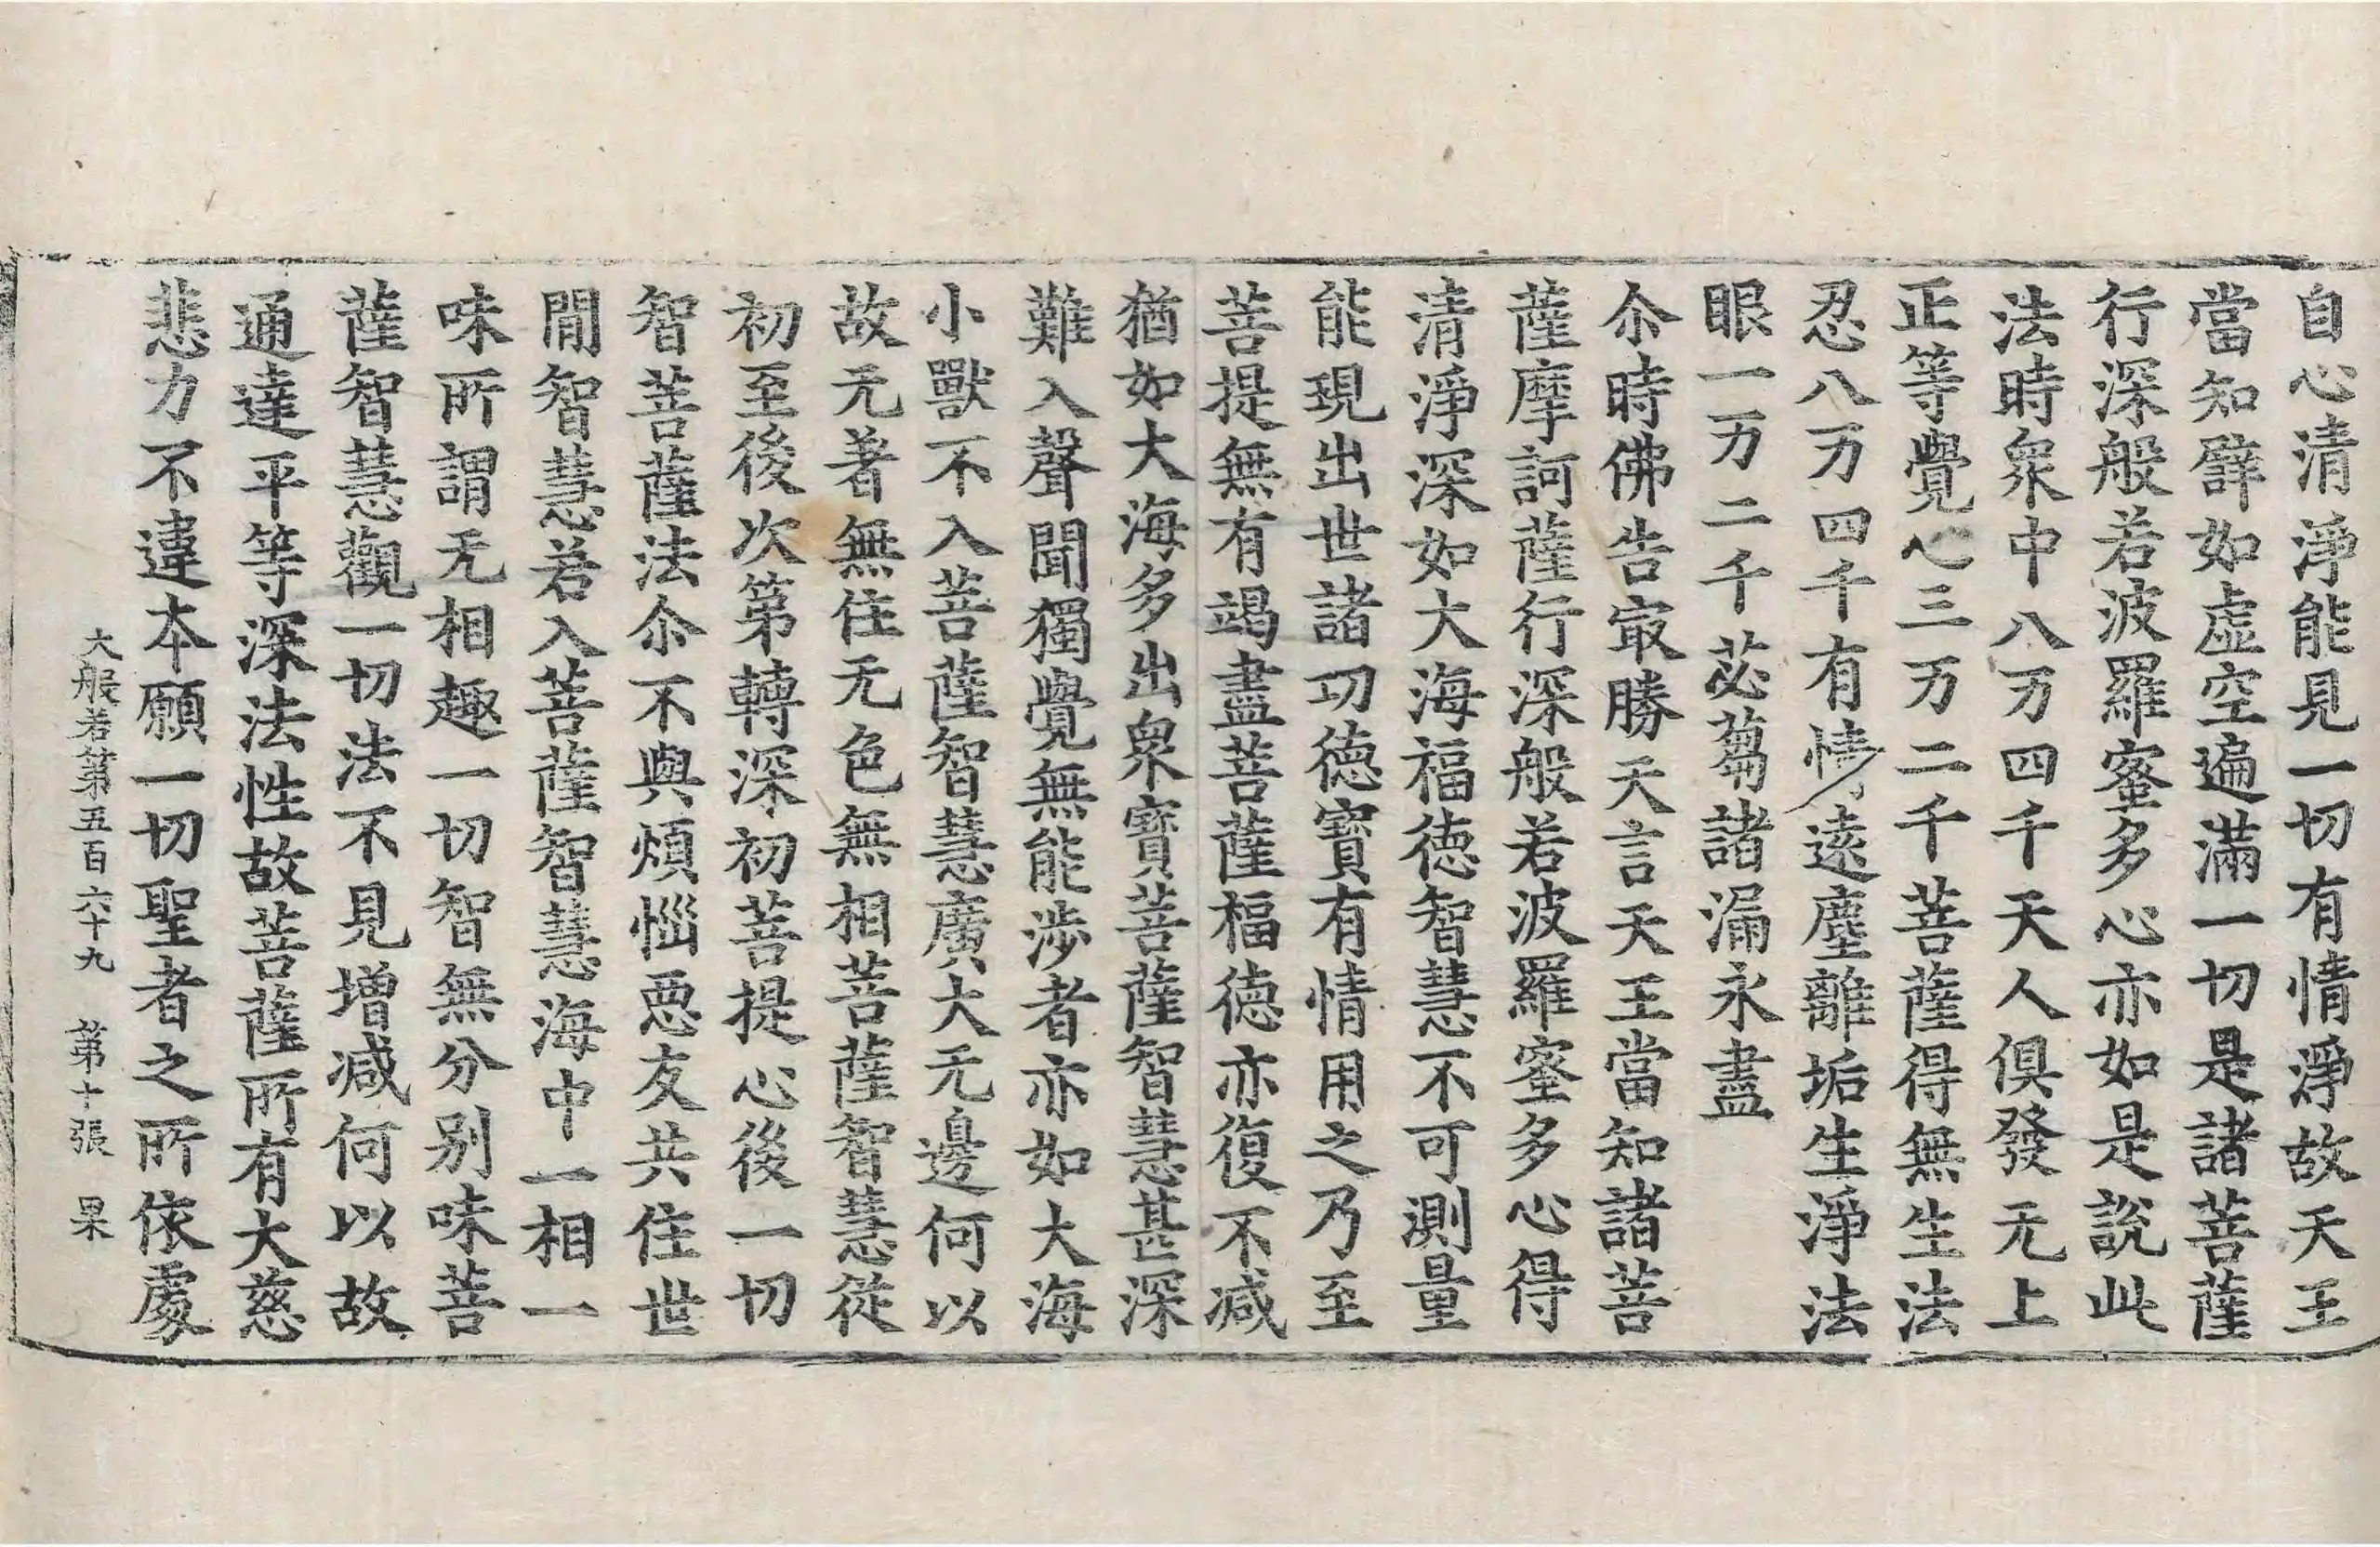 自心清淨能見一切有情淨故天王
當知譬如虛空遍滿一切是諸菩薩
行深般若波羅蜜多心亦如是說此
法時衆中八万四千天人俱發无上
正等覺心三万二千菩薩得無生法
忍八万四千有情遠塵離垢生淨法
眼一万二千苾蒭諸漏永盡
尒時佛告㝡勝天言天王當知諸菩
薩摩訶薩行深般若波羅蜜多心得
清淨深如大海福德智慧不可測量
能現出世諸功德寶有情用之乃至
菩提無有竭盡菩薩福德亦復不减
猶如大海多出衆寶菩薩智慧甚深
難入聲聞獨覺無能涉者亦如大海
小獸不入菩薩智慧廣大无邊何以
故无著無住无色無相菩薩智慧從
初至後次第轉深初菩提心後一切
智菩薩法尒不與煩惱惡友共住世
閒智慧若入菩薩智慧海中一相一
味所謂无相趣一切智無分別味菩
薩智慧觀一切法不見增减何以故
通達平等深法性故菩薩所有大慈
悲力不違本願一切聖者之所依處
大般若第五百六十九 第十張 果